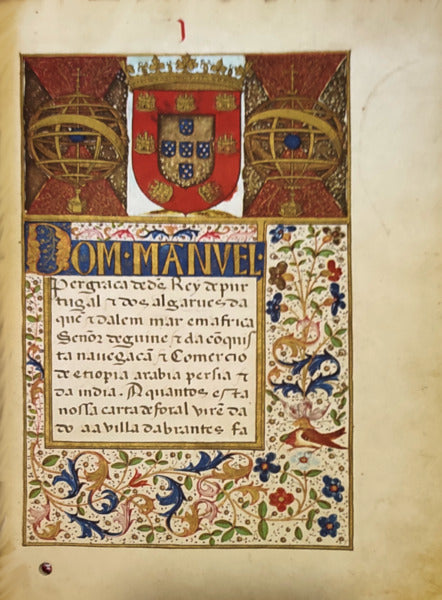 DOM · MANVEL ·
Per graça de ds̃ Rey de pur
tugal ⁊ dos algarues da
quẽ ⁊ dalem mar em africa
Señor de guine ⁊ da cõquis
ta nauegacã ⁊ Comercio
de etiopia arabia persia ⁊
da india. A quantos esta
nossa carta de foral virẽ da
do aa villa dabrantes fa